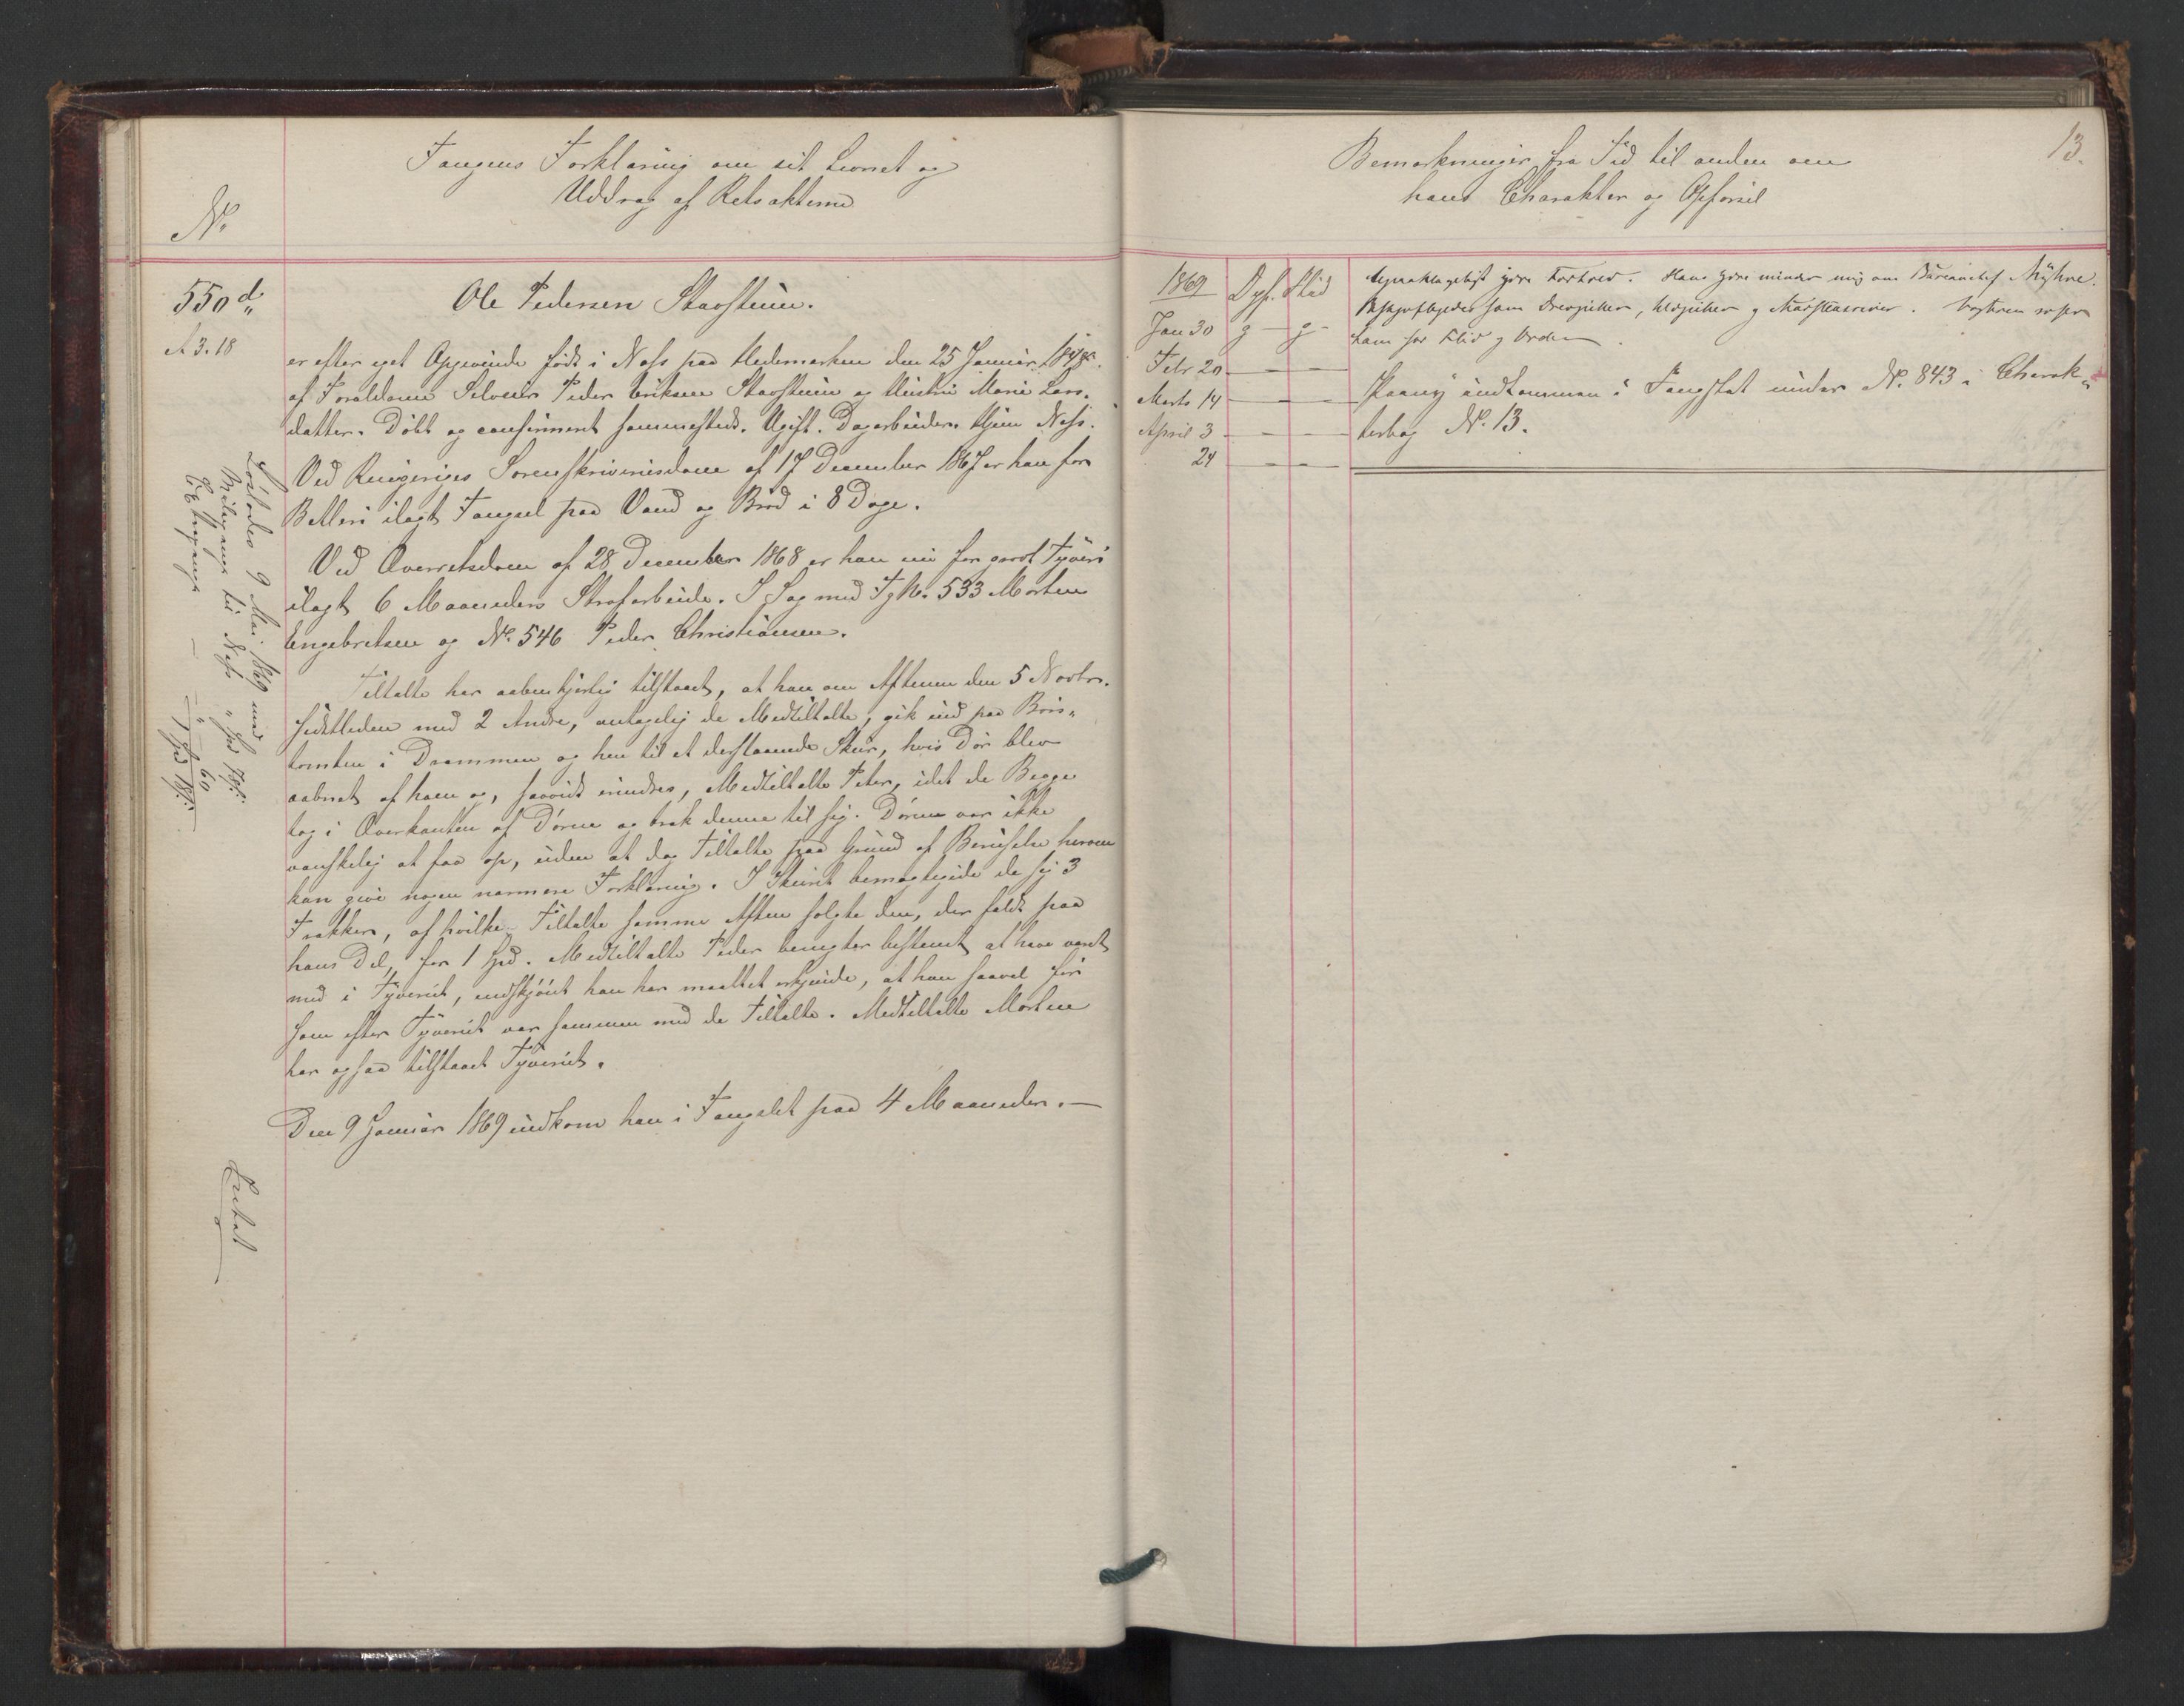 Fangens Forklaring om sit Levnet og
Uddrag af Retsakterne
No
550 d
A 3.18
Ole Pedersen Stavsteen.
er efter eget Opgivende født i Næss paa Hedemarken den 25 Januar 1848
af Forældrene Selveier Peder Eriksen Stavsteen og Hustru Marie Lars-
datter. Døbt og confirmeret sammesteds. Ugift. Dagarbeider. Hjem Næss.
Ved Ringeriges Sorenskriveriesdom af 17 December 1867 er han for
Betleri ilagt Fængsel paa Vand og Brød i 8 Dage.
Ved Overretsdom af 28 December 1868 er han nu for grovt Tyveri
ilagt 6 Maaneders Strafarbeide. I Sag med Fg No. 533 Morten
Engebretsen og No. 546 Peder Christiansen.
Tiltalte har aabenhjertig tilstaaet, at han om Aftenen den 5 Novbr.
sidstleden med 2 Andre, antagelig de Medtiltalte, gik ind paa Børs-
tomten i Drammen og hen til et derstaaende Skur, hvis Dør blev
aabnet af ham og, saavidt erindres, Medtiltalte Peter, idet de Begge
tog i Overkanten af Døren og trak denne til sig. Døren var ikke
vanskelig at faa op, uden at dog Tiltalte paa Grund af Beruselse herom
kan give nogen nærmere Forklaring. I Skuret bemægtigede de sig 3
Frakker, af hvilke Tiltalte samme Aften solgte den, der faldt paa
hans Del, for 1 Spd. Medtiltalte Peder benegter bestemt at have været
med i Tyveriet, endskjøndt han har maattet erkjende, at han saavel før
som efter Tyveriet var sammen med de Tiltalte. Medtiltalte Morten
har ogsaa tilstaaet Tyveriet.
Den 9 Januar 1869 indkom han i Fængslet paa 4 Maaneder.
Løslodes 9 Mai 1869 med
til Næss " Spd 78 s
60
1 Spd 18 s
13.
Bemærkninger fra Tid til anden om
hans Charakter og Opførsel
1869 Opf. Flid
Jan 30 g g
Febr 20 — —
Marts 14 — —
April 3 — —
24 — —
Hans Ydre minder mig om Bureauchef Myhre.
som og
ham for Flid og Orden.
Paany indkommen i Fangetal under No. 843 i Charak-
terbog No. 13.